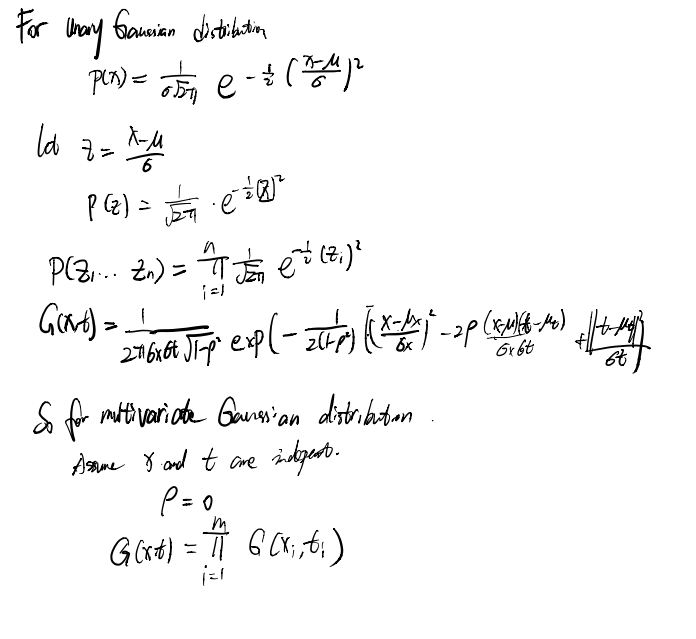 For Unary Gaussian distribution
P(x) = 1/(σ√2π) e^(-1/2 ((x-μ)/σ)²)
let z = (x-μ)/σ
P(z) = 1/√2π · e^(-1/2 (z)²)
P(z₁... zₙ) = ∏_{i=1}^{n} 1/√2π e^(-1/2 (zᵢ)²)
G(x,t) = 1/(2πσxσt √(1-ρ²)) exp(- 1/(2(1-ρ²)) [((x-μx)/σx)² - 2ρ (x-μ)(t-μt)/(σxσt) + ((t-μt)/σt)²])
So for multivariate Gaussian distribution.
Assume x and t are
ρ = 0
G(xt) = ∏_{i=1}^{m} G(xᵢ,tᵢ)